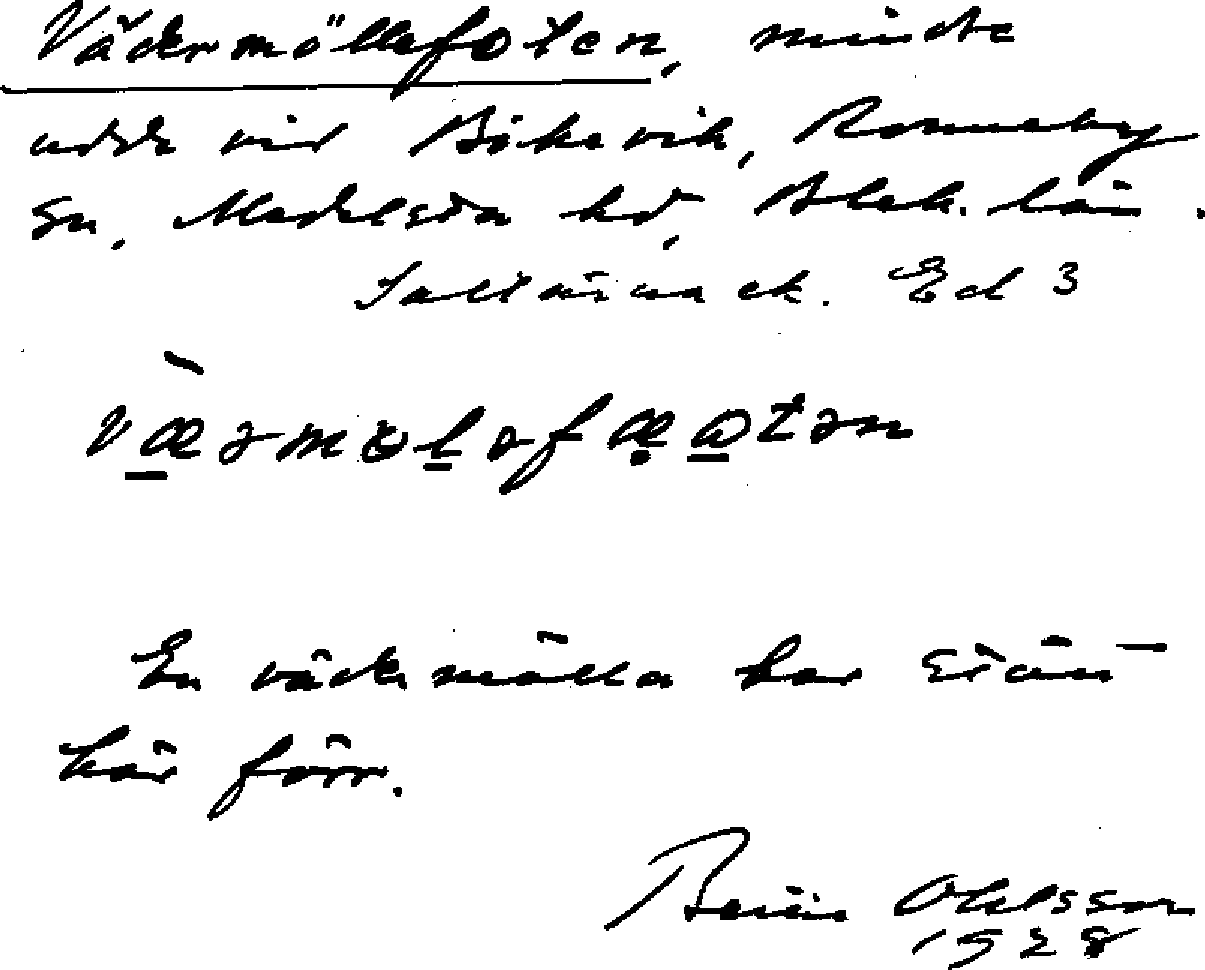 Vädermöllefoten, mindre
udde vid Bökevik, Ronneby
sn, Medelsta hd, Blek. län.
Saltärna ek. Ed 3
væərmöləfæatən
En vädermölla har stått
här förr.
Ohlsson
1928